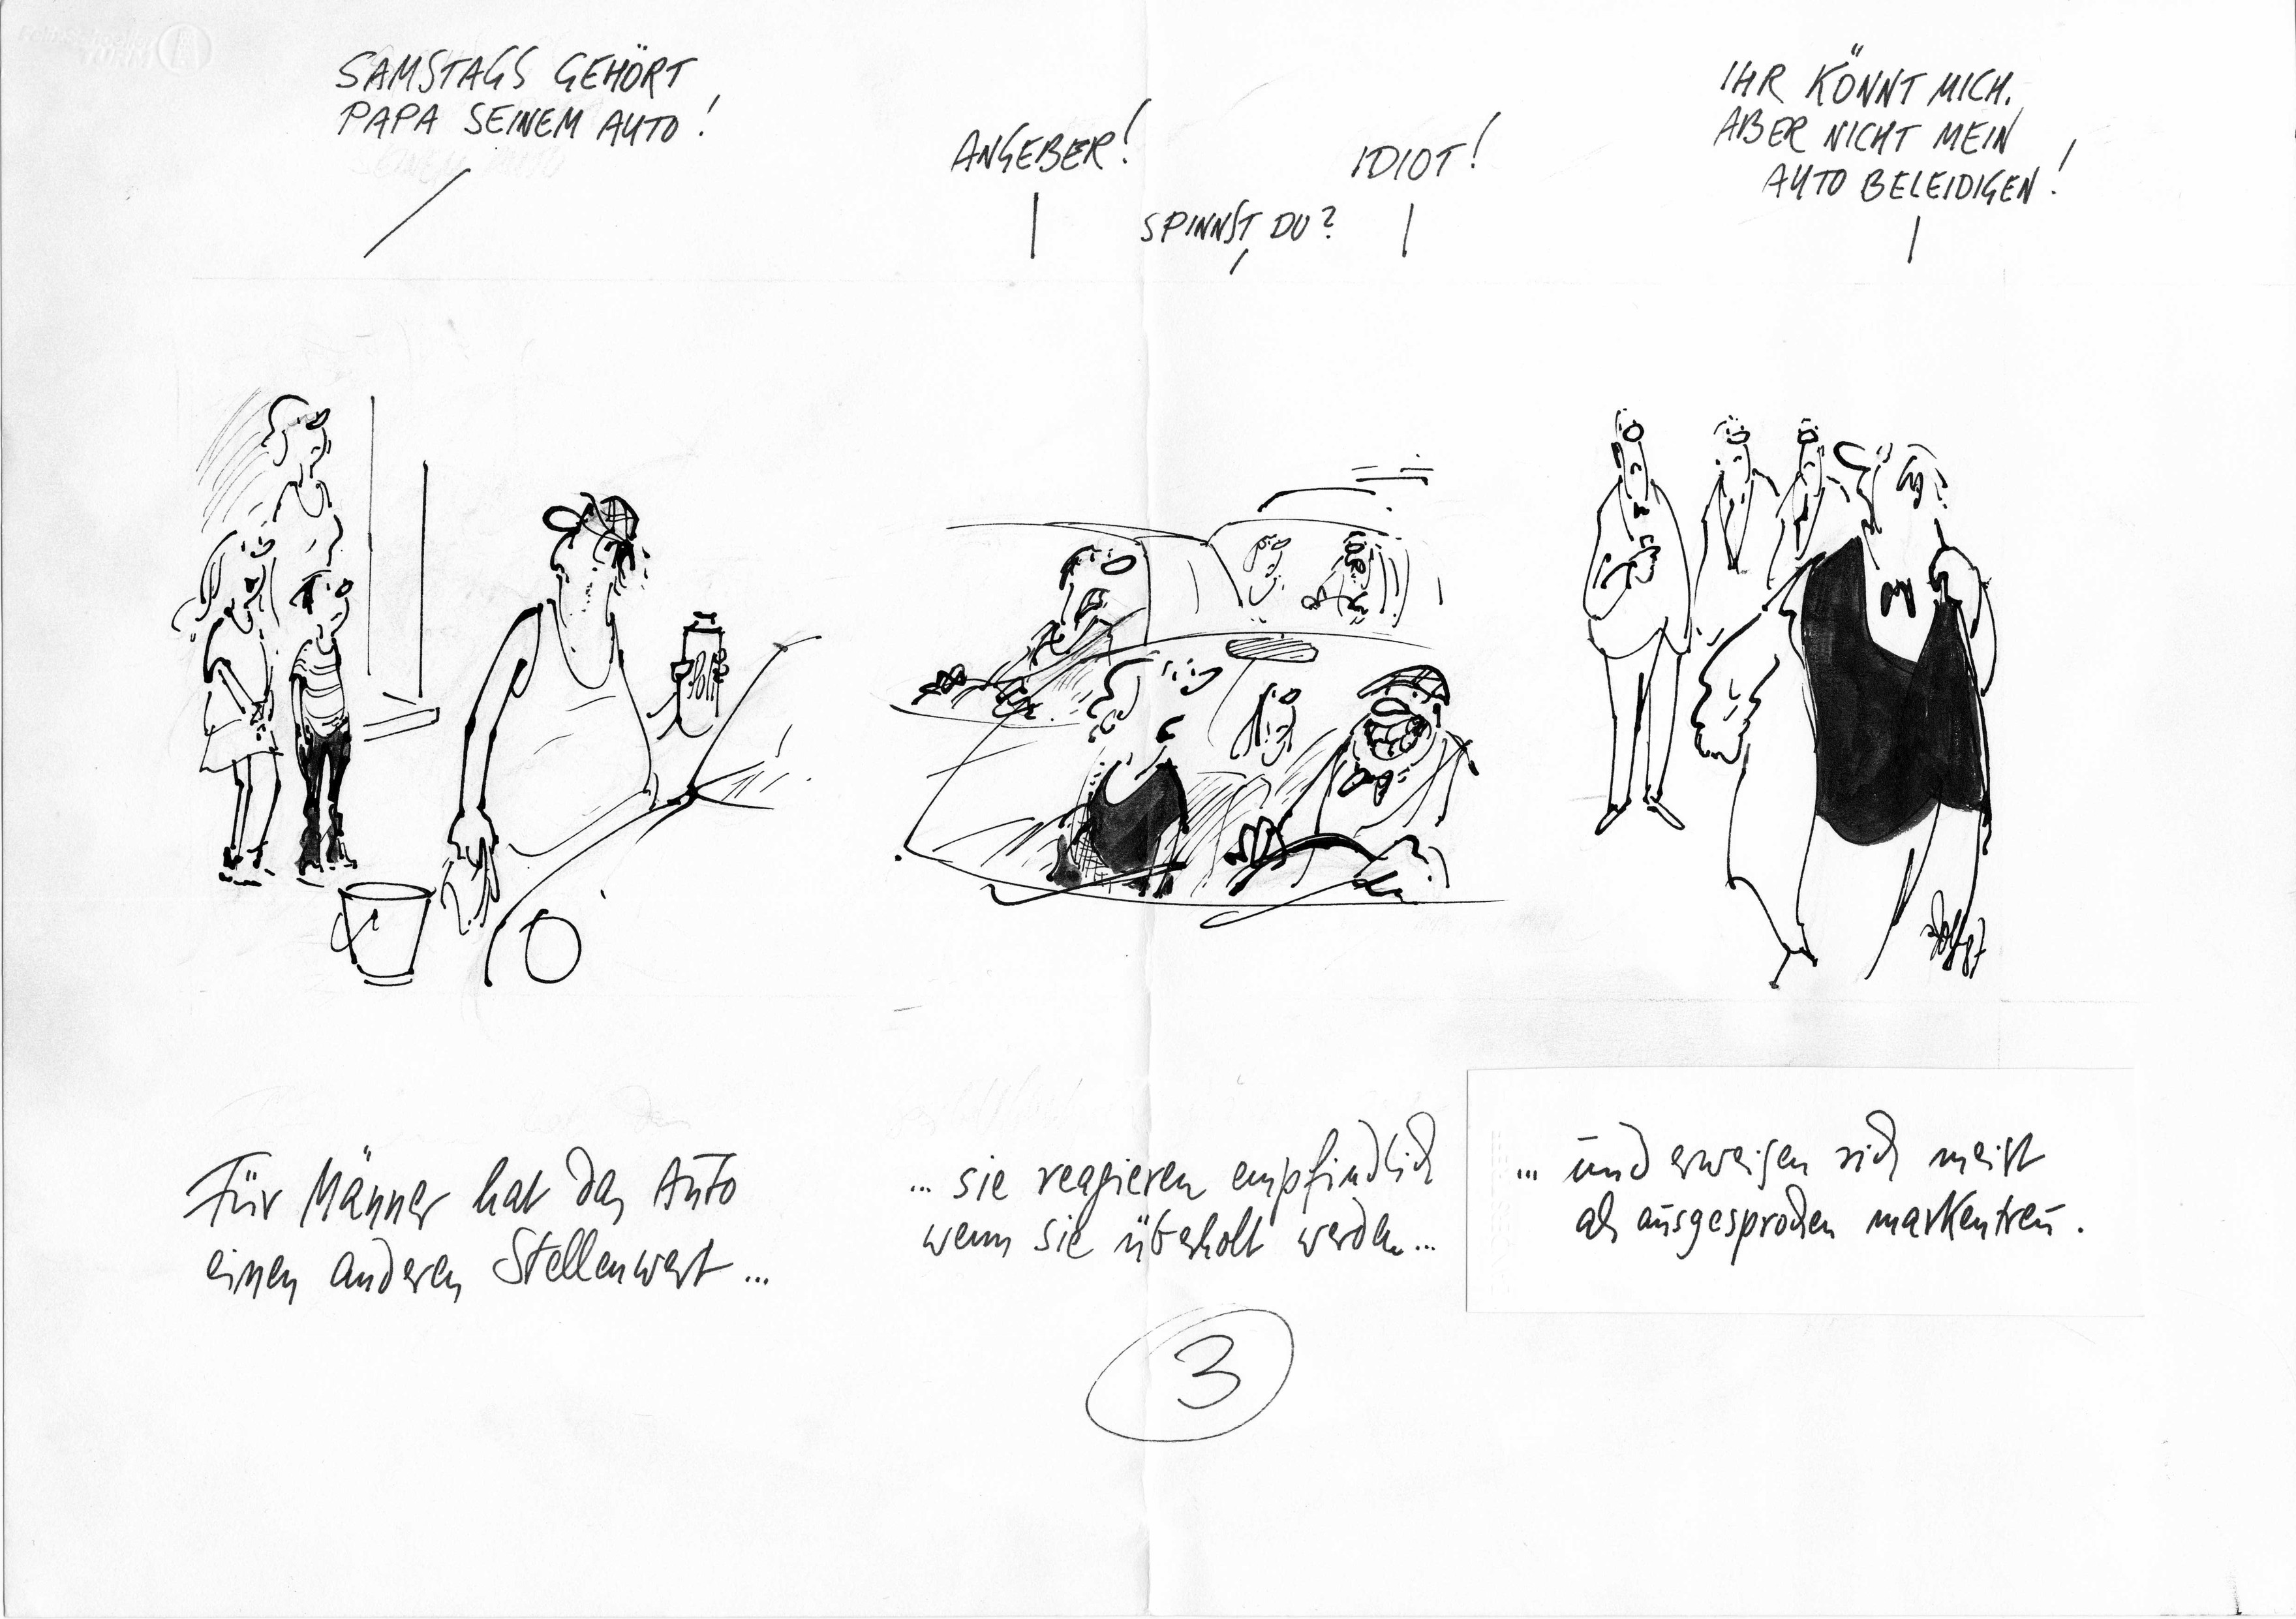 SAMSTAGS GEHÖRT
PAPA SEINEM AUTO!
ANGEBER!
SPINNST DU?
IDIOT!
IHR KÖNNT MICH.
ABER NICHT MEIN
AUTO BELEIDIGEN!
Für Männer hat das Auto
einen anderen Stellenwert ...
... sie reagieren empfindlich
wenn sie überholt werden...
... und erweisen sich meist
als ausgesprochen markentreu.
3